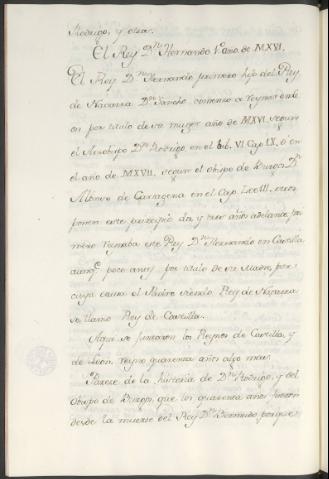 Rodrigo, y otros.
El Rey Dn. Hernando 1º año de MXVI.
El Rey Dn. Hernando primero hijo del Rey
de Navarra Dn. Sancho comenzo a reynar en Le
on por titulo de su muger año de MXVI segun
el Arzobispo Dn. Rodrigo en el Lib. VI Cap. IX. ó en
el año de MXVII, segun el obispo de Burgos Dn.
Alonso de Cartagena en el Cap. otros
ponen este principio dos, y tres años adelante, pri
mero reynaba este Rey Dn. Hernando en Castilla
aunq. poco antes por titulo de su Madre, por
cuya causa el Padre siendo Rey de Navarra
se llamo Rey de Castilla.
Aqui se juntaron los Reynos de Castilla, y
de Leon, reyno quarenta años algo mas.
Parece de la historia de Dn. Rodrigo, y del
Obispo de Burgos, que los quarenta años fueron
desde la muerte del Rey Dn. Bermudo porque